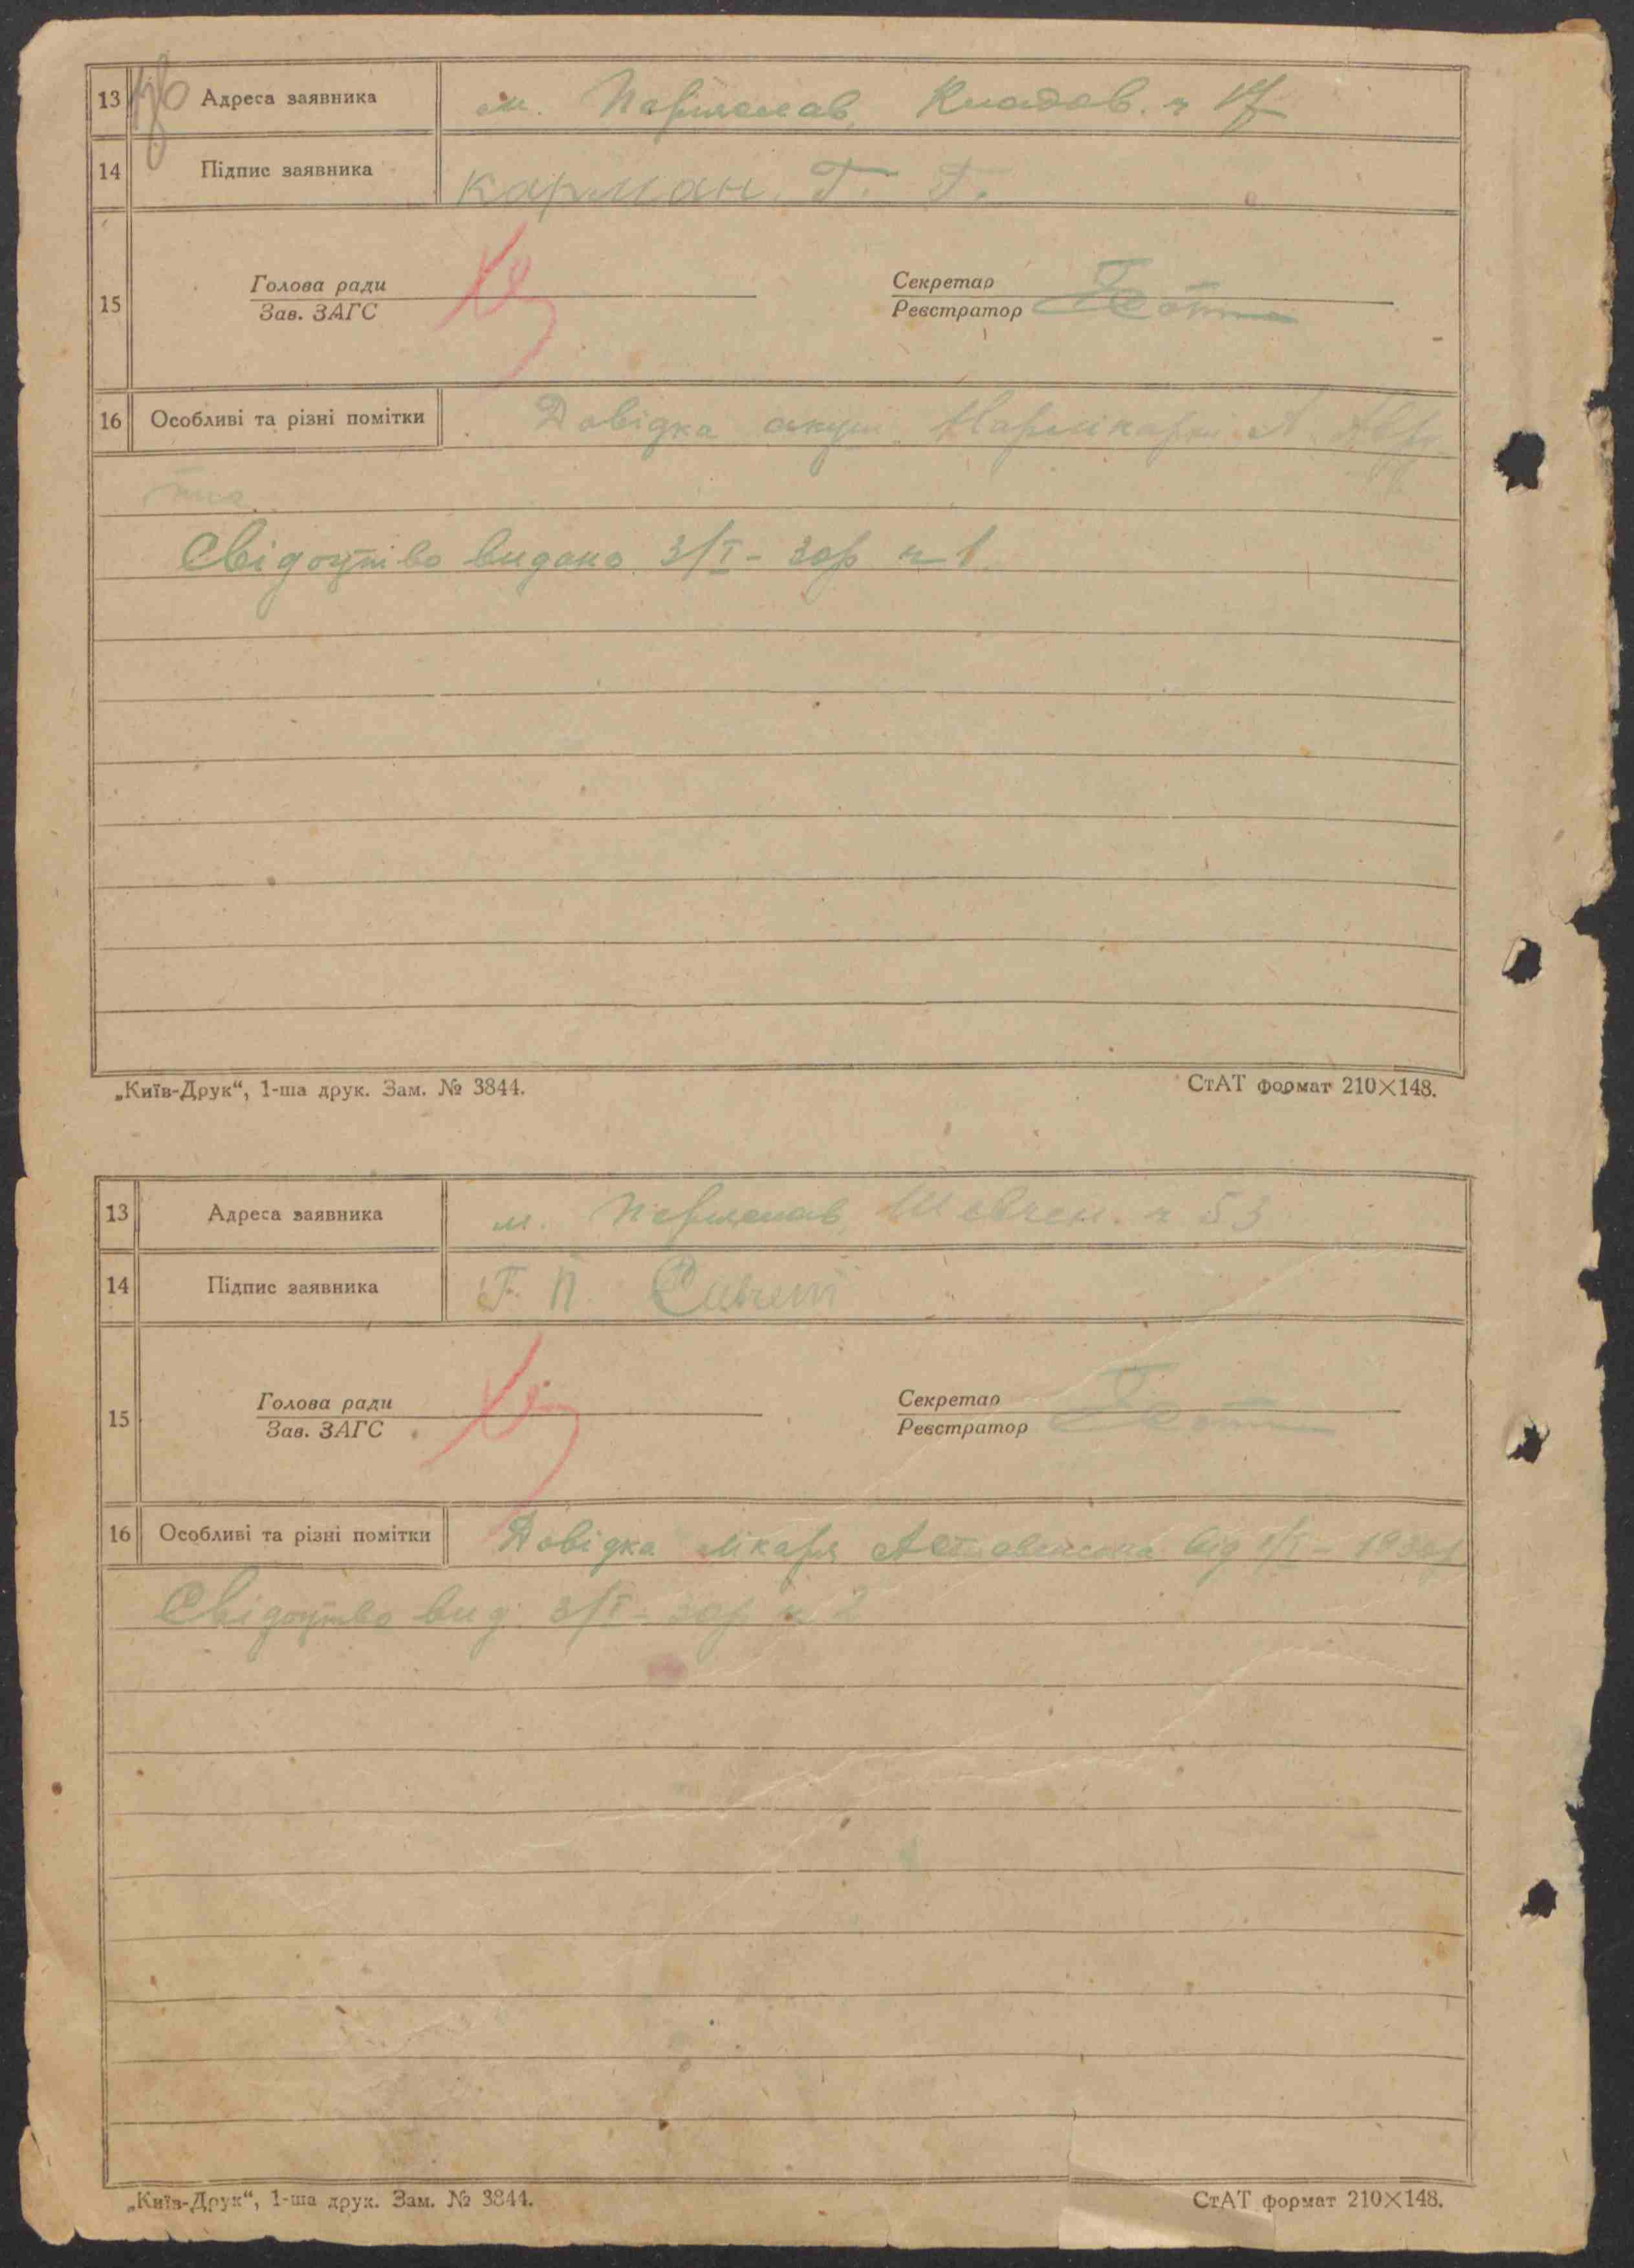 13 Адреса заявника м. Кладов. ч 17
14 Підпис заявника Карман. Г. Г.
Голова ради Секретар
15
Зав. ЗАГС Реєстратор
16 Особливі та різні помітки Довідка акуш.
Свідоцтво видано 3/I - 30р ч 1
„Київ-Друк“, 1-ша друк. Зам. № 3844. СтАТ формат 210×148.
13 Адреса заявника м. Шевчен. ч 53
14 Підпис заявника Г. П.
Голова ради Секретар
15
Зав. ЗАГС Реєстратор
16 Особливі та різні помітки Довідка лікаря від 1/I - 1930р
Свідоцтво вид. 3/I - 30р ч 2
„Київ-Друк“, 1-ша друк. Зам. № 3844. СтАТ формат 210×148.